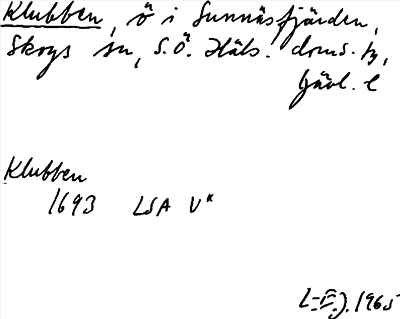 Klubben, ö i Sunnäsfjärden,
Skogs sn, S.Ö. Häls. doms. hg,
Gävl. l
Klubben
1693 LSA V"
1965